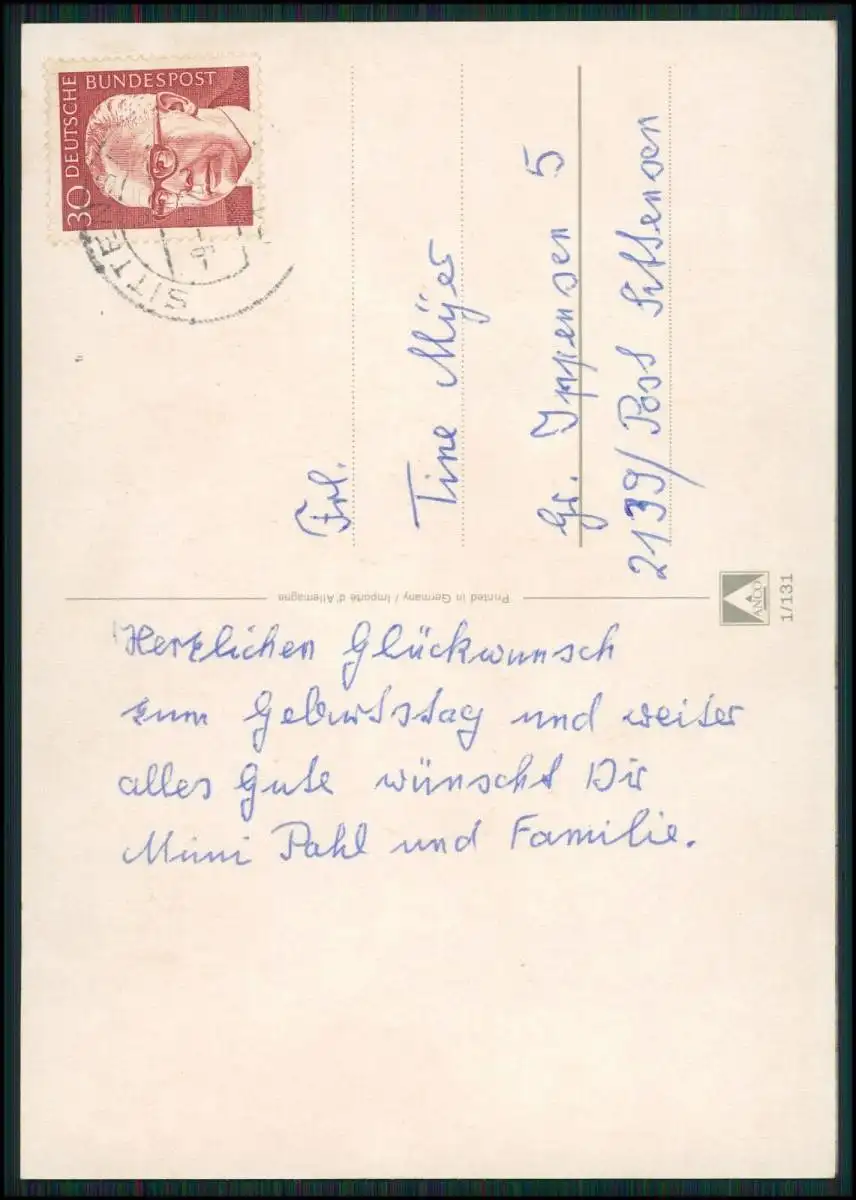 Herzlichen Glückwunsch
zum Geburtstag und weiter
alles Gute wünscht Dir
Mimi Pahl und Familie.
Frl.
Tine Mÿer
Gr. Ippensen 5
2139/Post Sittensen
30 DEUTSCHE BUNDESPOST
SITTEN
Printed in Germany / Importé d'Allemagne
ANCO
1/131